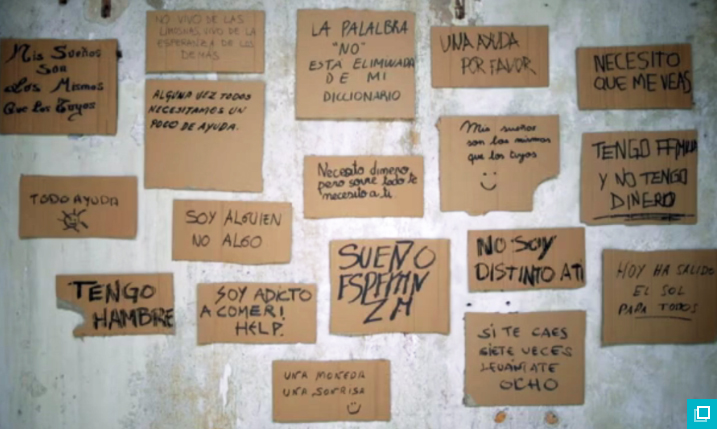 Mis Sueños
Son
Los Mismos
Que los Tuyos
NO VIVO DE LAS
LIMOSNAS, VIVO DE LA
ESPERANZA DE LOS
DEMÁS
LA PALALBRA
"NO"
ESTA ELIMINADA
DE MI
DICCIONARIO
UNA AYUDA
POR FAVOR
NECESITO
QUE ME VEAS
ALGUNA VEZ TODOS
NECESITAMOS UN
POCO DE AYUDA.
Necesito dinero
pero sobre todo te
necesito a ti
Mis sueños
son los mismos
que los tuyos
TENGO
Y NO TENGO
DINERO
TODO AYUDA
SOY ALGUIEN
NO ALGO
SUEÑO
NO SOY
DISTINTO A TI
HOY HA SALIDO
EL SOL
PARA TODOS
TENGO
HAMBRE
SOY ADICTO
A COMER!
HELP.
SI TE CAES
SIETE VECES
LEVÁNTATE
OCHO
UNA MONEDA
UNA SONRISA